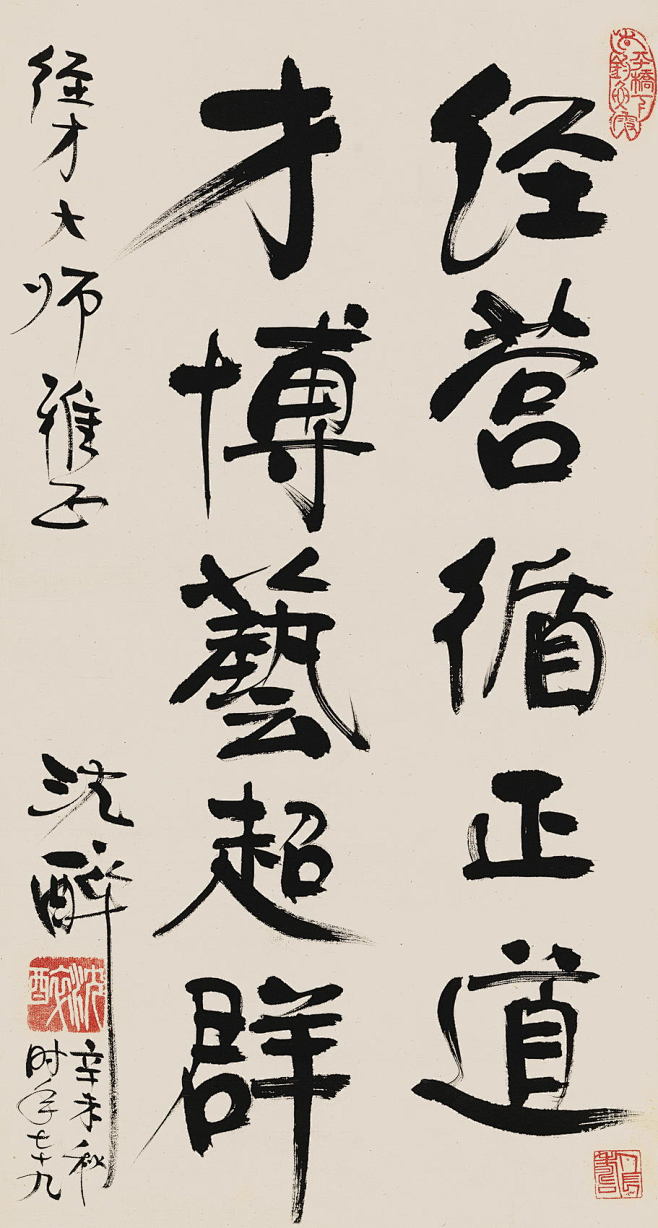 经营循正道
才博藝超群
径才大师雅正
沈醉
辛未秋
时年七十九
沈醉